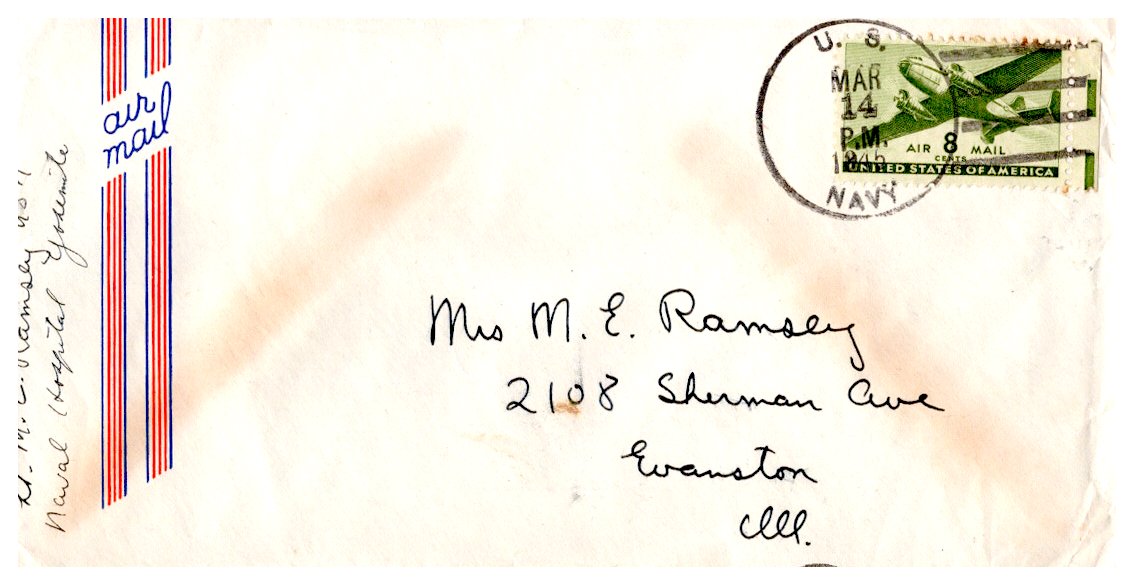 Lt. M. E. Ramsey
Naval Hospital Yosemite
air
mail
U. S.
MAR
14
P.M.
1945
NAVY
AIR 8 MAIL
CENTS
UNITED STATES OF AMERICA
Mrs M. E. Ramsey
2108 Sherman Ave
Evanston
Ill.